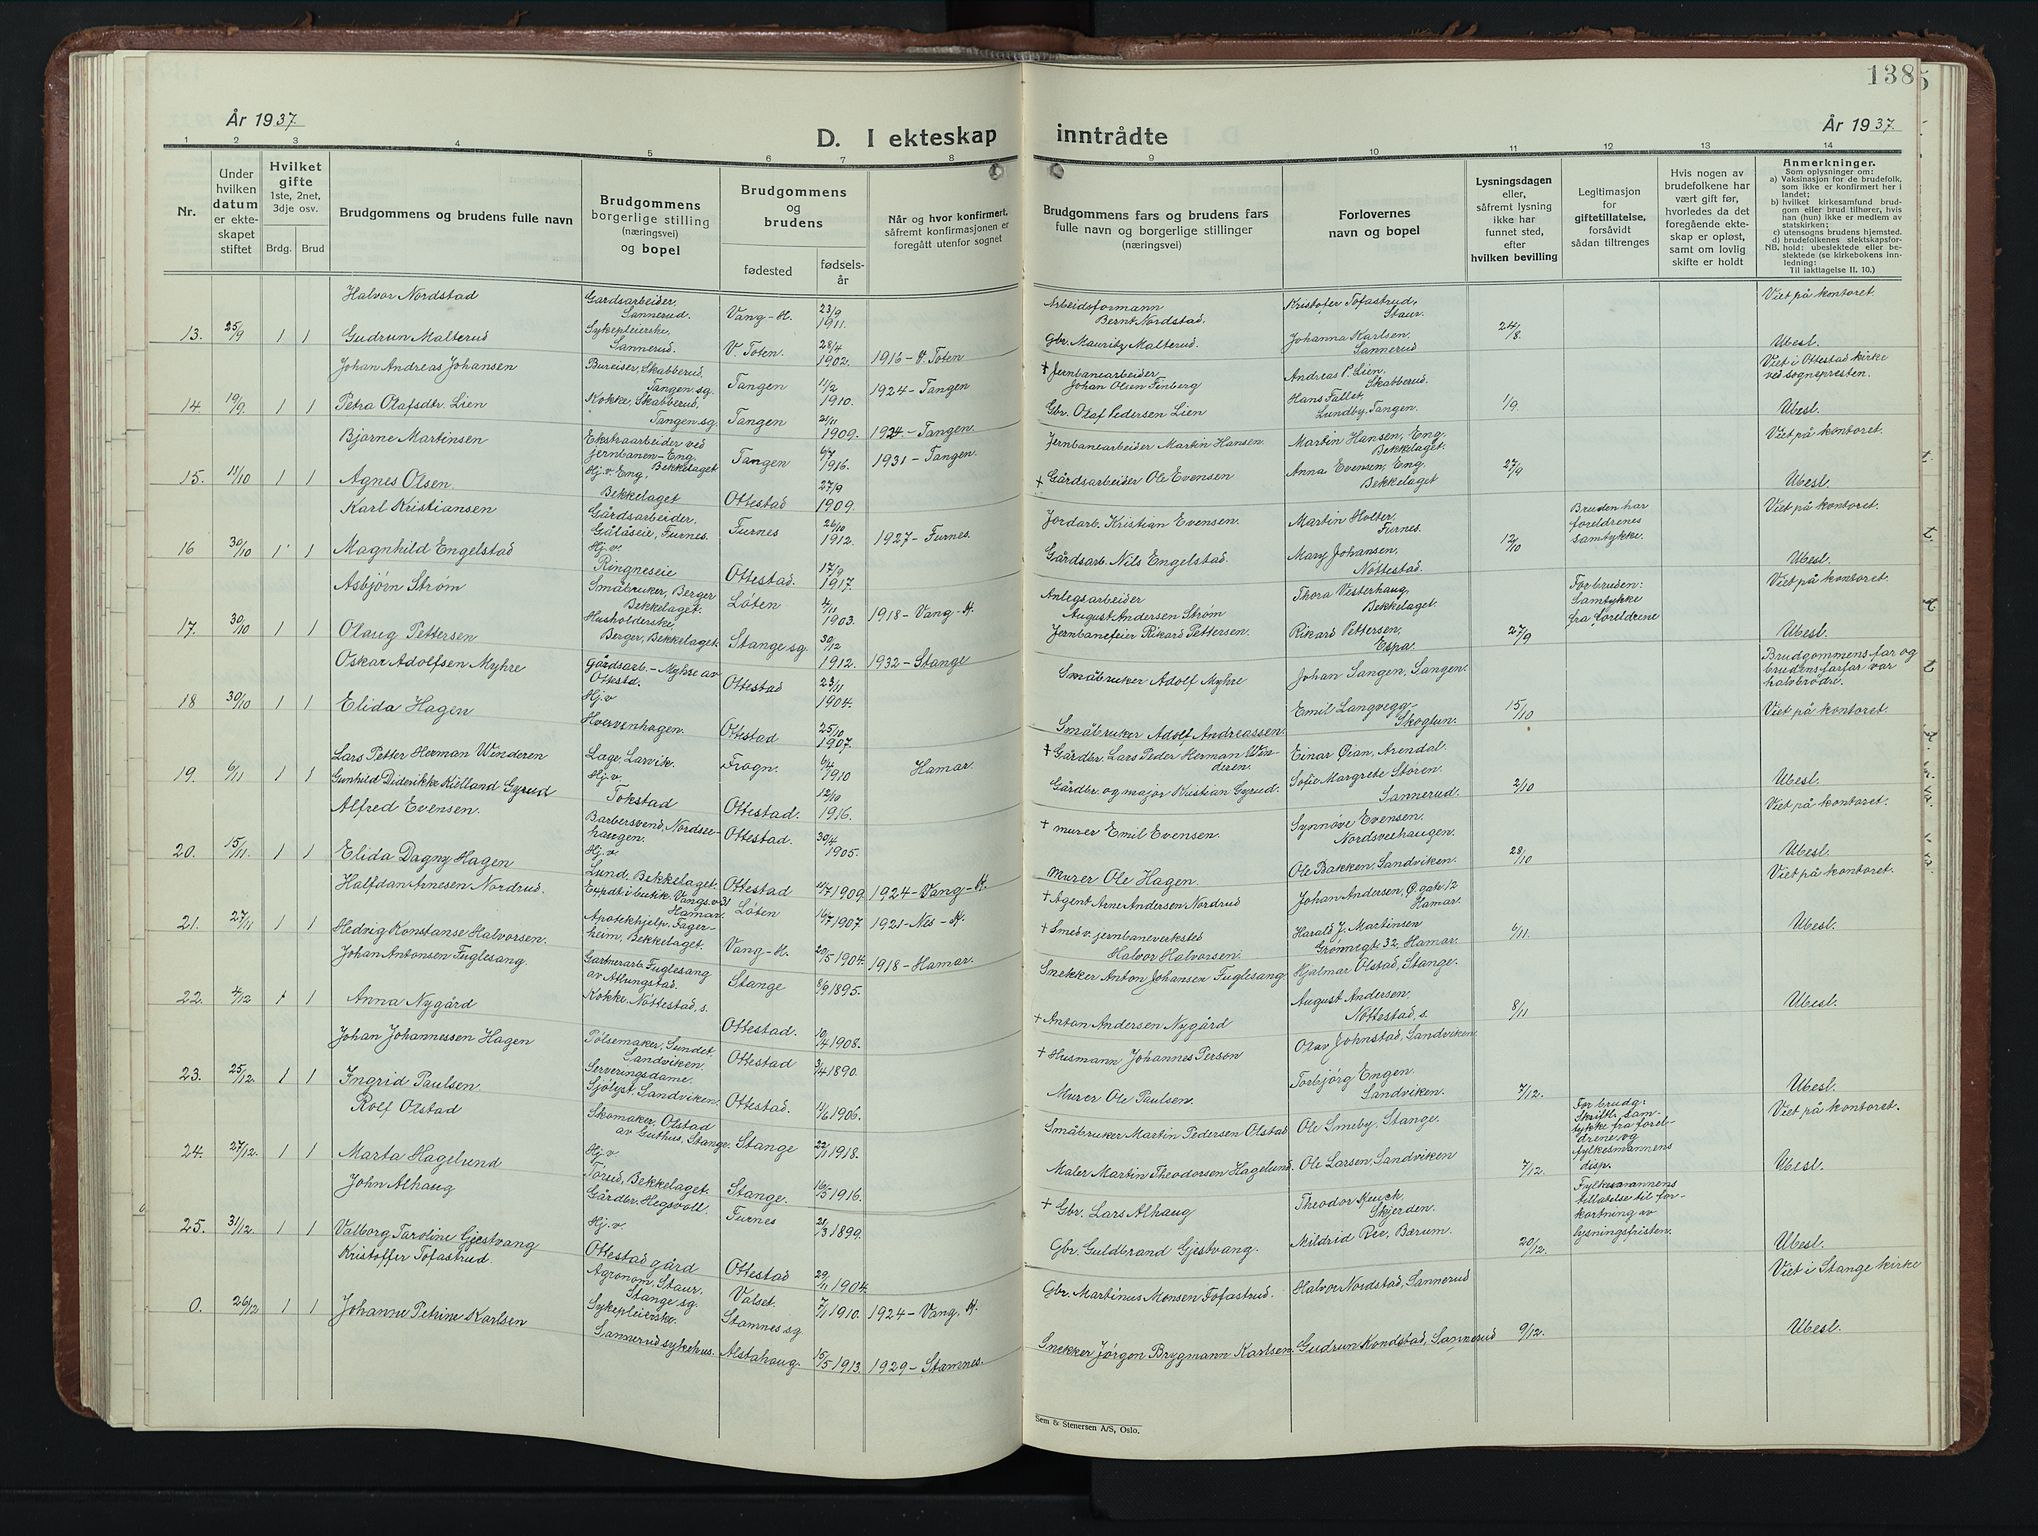 138
År 1937.
D. I ekteskap inntrådte
År 1937.
1 2 3 4 5 6 7 8 9 10 11 12 13 14
Nr.
Under hvilken datum er ekteskapet stiftet
Hvilket gifte
1ste, 2net, 3dje osv.
Brdg. Brud
Brudgommens og brudens fulle navn
Brudgommens borgerlige stilling (næringsvei) og bopel
Brudgommens og brudens
fødested fødselsår
Når og hvor konfirmert, såfremt konfirmasjonen er foregått utenfor sognet
Brudgommens fars og brudens fars fulle navn og borgerlige stillinger (næringsvei)
Forlovernes navn og bopel
Lysningsdagen eller, såfremt lysning ikke har funnet sted, efter hvilken bevilling
Legitimasjon for giftetillatelse, forsåvidt sådan tiltrenges
Hvis nogen av brudefolkene har vært gift før, hvorledes da det foregående ekteskap er opløst, samt om lovlig skifte er holdt
Anmerkninger.
Som oplysninger om:
a) Vaksinasjon for de brudefolk, som ikke er konfirmert her i landet;
b) hvilket kirkesamfund brudgom eller brud tilhører, hvis han (hun) ikke er medlem av statskirken;
c) utensogns brudens hjemsted.
d) brudefolkenes slektskapsforhold: ubeslektede eller beslektede (se kirkebokens innledning:
NB.
Til iakttagelse II. 10.)
Halvor Nordstad Gardsarbeider, Sannerud. Vang-H. 23/9 1911. Arbeidsformann Bernt Nordstad. Kristofer Tofastrud, Staur. Viet på kontoret.
13. 25/9 1 1 Gudrun Malterud Sykepleierske, Sannerud. V. Toten. 28/4 1902. 1916 - V. Toten Gbr. Mauritz Malterud. Johanna Karlsen Sannerud 24/8 Ubesl.
Johan Andreas Johansen Bureiser, Skabberud, Tangen sg. Tangen 11/2 1910. 1924 - Tangen † Jernbanearbeider Johan Olsen Finberg Andreas P. Lien, Skabberud. Viet i Ottestad kirke ved sognepresten.
14. 19/9. 1 1 Petra Olafsdtr. Lien Kokke, Skabberud, Tangen sg. Tangen 21/11 1909. 1924 - Tangen. Gbr. Olaf Pedersen Lien Hans Fallet, Lundby, Tangen. 1/9. Ubesl.
Bjarne Martinsen Ekstraarbeider ved jernbanen - Eng, Bekkelaget Tangen 6/7 1916. 1931 - Tangen. Jernbanearbeider Martin Hansen. Martin Hansen, Eng Bekkelaget. Viet på kontoret.
15. 11/10 1 1 Agnes Olsen. Hj.v. Eng, Bekkelaget Ottestad 27/9 1909. † Gårdsarbeider Ole Evensen Anna Evensen, Eng. Bekkelaget 27/9 Ubesl.
Karl Kristiansen Gårdsarbeider, Gålåseie, Furnes. Furnes 26/10 1912. 1927 - Furnes. Jordarb. Kristian Evensen. Martin Holter, Furnes. Bruden har foreldrenes samtykke. Viet på kontoret.
16 30/10 1 1 Magnhild Engelstad Hj.v. Ringneseie Ottestad. 17/9 1917. Gårdsarb. Nils Engelstad. Mary Johansen, Nøttestad. 12/10 Ubesl.
Asbjørn Strøm Småbruker, Berger Bekkelaget. Løten 4/11 1903. 1918 - Vang H. Anlegsarbeider August Andersen Strøm Thora Vesterhaug, Bekkelaget. For bruden: Samtykke fra foreldrene Viet på kontoret.
17. 30/10 1 1 Olaug Pettersen Husholderske, Berger, Bekkelaget. Stange sg. 30/12 1912. 1932 - Stange Jernbanefeier Rikard Pettersen. Rikard Pettersen, Espa. 27/9 Ubesl.
Oskar Adolfsen Myhre Gårdsarb. - Myhre av Ottestd. Ottestad 23/11 1904. Småbruker Adolf Myhre Johan Sangen, Sangen. Brudgommens far og brudens farfar var halvbrødre.
18 30/10 1 1 Elida Hagen Hj.v Hvervenhagen. Ottestad 25/10 1907. Småbruker Adolf Andreassen. Emil Langvegg Skogtun. 15/10 Viet på kontoret.
Lars Petter Herman Winderen Lage, Larvik. Frogn. 6/4 1910 Hamar. † Gårdbr. Lars Peder Herman Winderen. Einar Øian, Arendal.
19. 6/11 1 1 Gunhild Diderikke Kielland Gyrud Hj.v. Tokstad Ottestad. 12/10 1916. Gårdbr. og major Kristian Gyrud. Sofie Margrete Støren. Sannerud. 2/10 Ubesl.
Alfred Evensen. Barbersvend, Nordseehaugen. Ottestad. 30/4 1905. † murer Emil Evensen. Synnøve Evensen. Nordsveehaugen. Viet på kontoret.
20. 15/11. 1 1 Elida Dagny Hagen Hj.v. Lund, Bekkelaget. Ottestad 11/7 1909. 1924 - Vang - H. Murer Ole Hagen. Ole Bakken, Sandviken. 28/10 Ubesl.
Halfdan Arnesen Nordrud. Expdt i butik. Vangs.v. 31 Hamar. Løten 16/7 1907. 1921 - Nes - H. † Agent Arne Andersen Nordrud Johan Andersen, Ø. gate 12 Hamar. Viet på kontoret.
21. 27/11 1 1 Hedvig Konstanse Halvorsen. Apotekhjelp. Fagerheim, Bekkelaget. Vang-H. 20/5 1904. 1918 - Hamar. † Smed v. jernbaneverksted Halvor Halvorsen. Harald J. Martinsen Grønnegt 32, Hamar. 6/11. Ubesl.
Johan Antonsen Fuglesang. Gartnerarb. Fuglesang av Atlungstad. Stange 8/9 1895. Snekker Anton Johansen Fuglesang Hjalmar Olstad, Stange.
22. 4/12 1 1 Anna Nygård Kokke, Nøttestad, s. Ottestad. 10/4 1908. † Anton Andersen Nygård August Andersen, Nøttestad, s. 8/11 Ubesl.
Johan Johannessen Hagen Pølsemaker, Sundet Sandviken. Ottestad 3/4 1890. † Husmann Johannes Person Olav Johnstad, Sandviken
23. 25/12. 1 1 Ingrid Paulsen. Serveringsdame. Sjølyst, Sandviken. Ottestad. 11/6 1906. Murer Ole Paulsen. Torbjørg Engen Sandviken. 7/12. Ubesl.
Rolf Olstad Skomaker, Olstad av Guthus, Stange. Stange 22/1 1918. Småbruker Martin Pedersen Olstad Ole Smeby, Stange. For brudg: Skriftl. samtykke fra foreldrene og fylkesmannens disp. Viet på kontoret.
24. 27/12. 1 1 Marta Hagelund Hj.v. Torud, Bekkelaget. Stange. 16/5 1916. Maler Martin Theodorsen Hagelund. Ole Larsen, Sandviken 7/12. Ubesl.
John Alhaug Gårdbr. Hegsvoll. Furnes 21/3 1899. † Gbr. Lars Alhaug Theodor Keuch, Skjerden. Fylkesmannens tillatelse til forkortning av lysningsfristen.
25. 31/12. 1 1 Valborg Taroline Gjestvang Hj.v. Ottestad gård Ottestad 29/11 1904. Gbr. Guldbrand Gjestvang. Mildrid Ree, Bærum. 20/12. Ubesl.
Kristoffer Tofastrud. Agronom, Staur, Stange sg. Valset. 7/11 1910. 1924 - Vang. H. Gbr. Martinus Monsen Tofastrud. Halvor Nordstad, Sannerud Viet i Stange kirke
0. 26/12 1 1 Johanne Petrine Karlsen Sykepleierske. Sannerud sykehus. Stamnes sg. Alstahaug. 15/5 1913. 1929 - Stamnes. Snekker Jørgen Brygmann Karlsen. Gudrun Kondstad, Sannerud 9/12. Ubesl.
Sem & Stenersen A/S, Oslo.